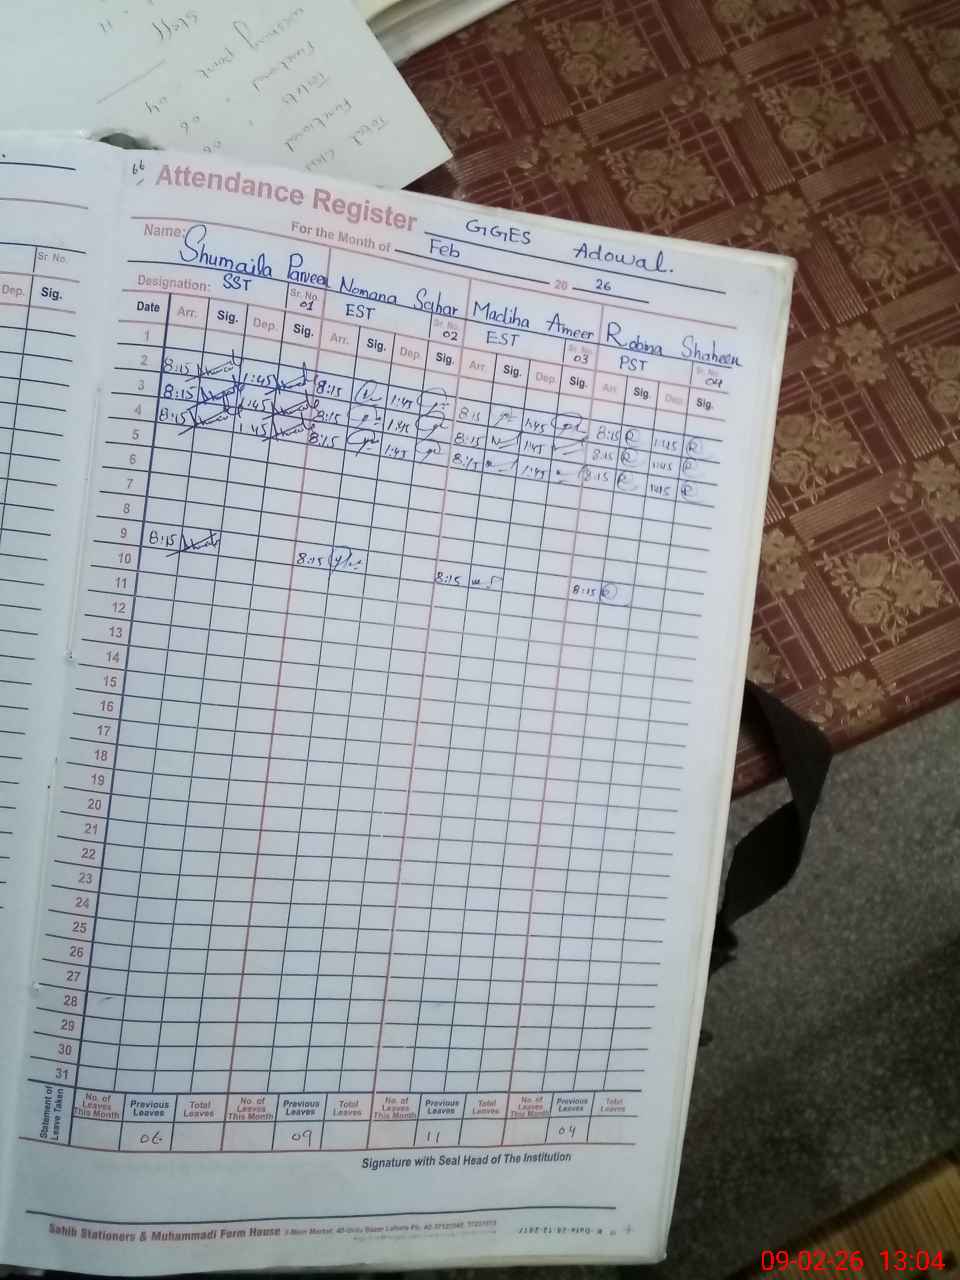 Attendance Register GGES Adowal.
For the Month of Feb 20 26
Name: Shumaila Parveen Nomana Sahar Madiha Ameer Robina Shaheen
Designation: SST Sr. No. 01 EST Sr. No. 02 EST Sr. No. 03 PST Sr. No. 04
Date Arr. Sig. Dep. Sig. Arr. Sig. Dep. Sig. Arr. Sig. Dep. Sig. Arr. Sig. Dep. Sig.
Sr. No.
Dep. Sig.
1
2 8:15 1:45 8:15 1:45 8:15 1:45 8:15 1:45
3 8:15 1:45 8:15 1:45 8:15 1:45 8:15 1:45
4 8:15 1:45 8:15 1:45 8:15 1:45 8:15 1:45
5
6
7
8
9 8:15 8:15 8:15 8:15
10
11
12
13
14
15
16
17
18
19
20
21
22
23
24
25
26
27
28
29
30
31
Statement of Leave Taken
No. of Leaves This Month Previous Leaves Total Leaves No. of Leaves This Month Previous Leaves Total Leaves No. of Leaves This Month Previous Leaves Total Leaves No. of Leaves This Month Previous Leaves Total Leaves
06 09 11 04
Signature with Seal Head of The Institution
Sahib Stationers & Muhammadi Form House
09-02-26 13:04